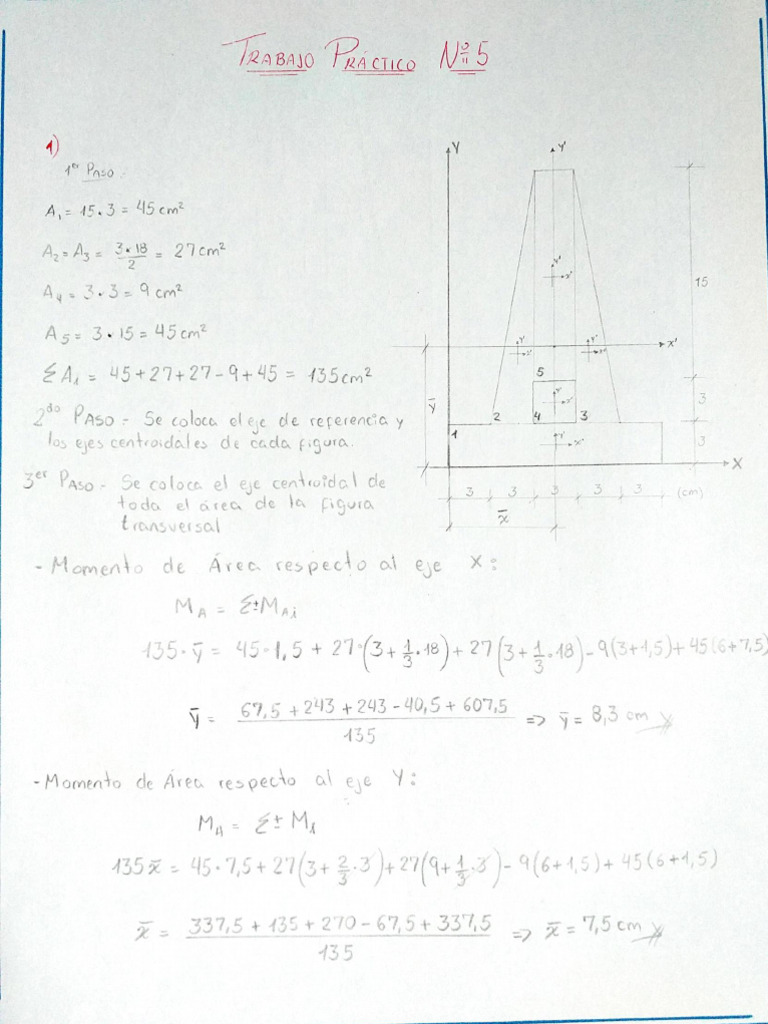 TRABAJO PRÁCTICO Nº 5
1)
1er PASO:
A₁ = 15 · 3 = 45 cm²
A₂ = A₃ = 3 · 18 / 2 = 27 cm²
A₄ = 3 · 3 = 9 cm²
A₅ = 3 · 15 = 45 cm²
ΣA₁ = 45 + 27 + 27 - 9 + 45 = 135 cm²
2do PASO - Se coloca el eje de referencia y
los ejes centroidales de cada figura.
3er PASO - Se coloca el eje centroidal de
toda el área de la figura
transversal
Y
Y'
Y'
X'
15
X'
Y'
X'
Y'
X'
5
ȳ
Y'
X'
3
2
4
3
1
Y'
X'
3
X
3 3 3 3 3 (cm)
x̄
- Momento de Área respecto al eje X:
M_A = Σ±M_Ai
135 · ȳ = 45 · 1,5 + 27 · (3 + 1/3 · 18) + 27 (3 + 1/3 · 18) - 9(3+1,5) + 45(6+7,5)
ȳ = 67,5 + 243 + 243 - 40,5 + 607,5 / 135 => ȳ = 8,3 cm
- Momento de Área respecto al eje Y:
M_A = Σ± M₁
135x̄ = 45 · 7,5 + 27(3 + 2/3 · 3) + 27(9 + 1/3 · 3) - 9(6+1,5) + 45(6+1,5)
x̄ = 337,5 + 135 + 270 - 67,5 + 337,5 / 135 => x̄ = 7,5 cm